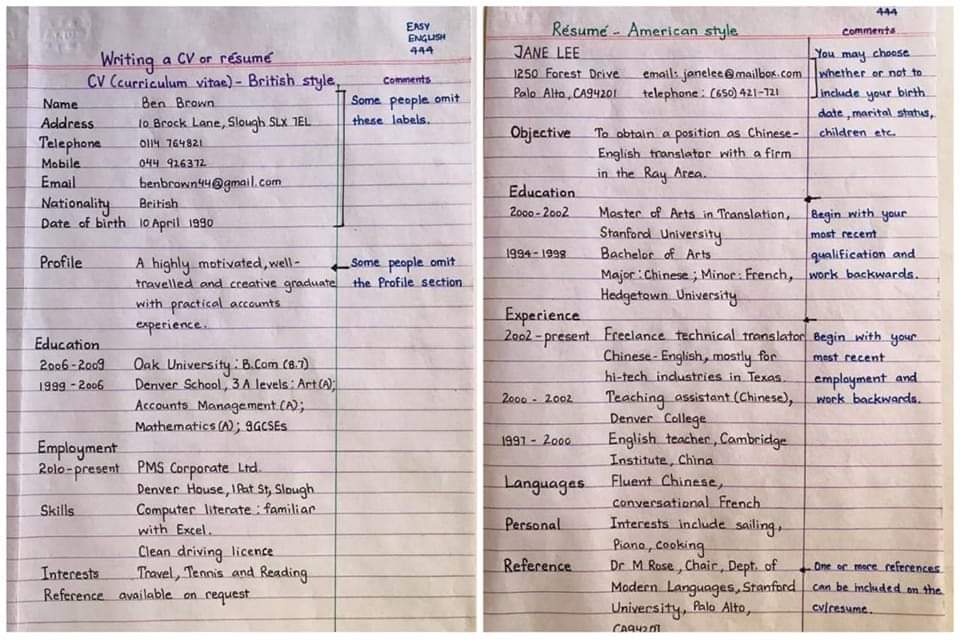 EASY
ENGLISH
444
Writing a CV or résumé
CV (curriculum vitae) - British style
comments
Name Ben Brown
Some people omit
Address 10 Brock Lane, Slough SLX 7EL
these labels.
Telephone 0114 764821
Mobile 044 926372
Email benbrown44@gmail.com
Nationality British
Date of birth 10 April 1990
Profile A highly motivated, well-
Some people omit
travelled and creative graduate
the Profile section
with practical accounts
experience.
Education
2006-2009 Oak University : B.Com (8.7)
1999-2006 Denver School, 3 A levels : Art (A);
Accounts Management (A);
Mathematics (A); 9GCSEs
Employment
2010-present PMS Corporate Ltd.
Denver House, 1 Pat St, Slough
Skills Computer literate : familiar
with Excel.
Clean driving licence
Interests Travel, Tennis and Reading
Reference available on request
444
Résumé - American style
comments
JANE LEE
You may choose
1250 Forest Drive email: janelee@mailbox.com
whether or not to
Palo Alto, CA94201 telephone : (650) 421-721
include your birth
date, marital status,
Objective To obtain a position as Chinese-
children etc.
English translator with a firm
in the Ray Area.
Education
2000-2002 Master of Arts in Translation,
Begin with your
Stanford University
most recent
1994-1998 Bachelor of Arts
qualification and
Major : Chinese ; Minor : French,
work backwards.
Hedgetown University
Experience
2002-present Freelance technical translator
Begin with your
Chinese-English, mostly for
most recent
hi-tech industries in Texas.
employment and
2000-2002 Teaching assistant (Chinese),
work backwards.
Denver College
1997-2000 English teacher, Cambridge
Institute, China
Languages Fluent Chinese,
conversational French
Personal Interests include sailing,
Piano, cooking
Reference Dr M Rose, Chair, Dept. of
One or more references
Modern Languages, Stanford
can be included on the
University, Palo Alto,
cv/resume.
CA94201